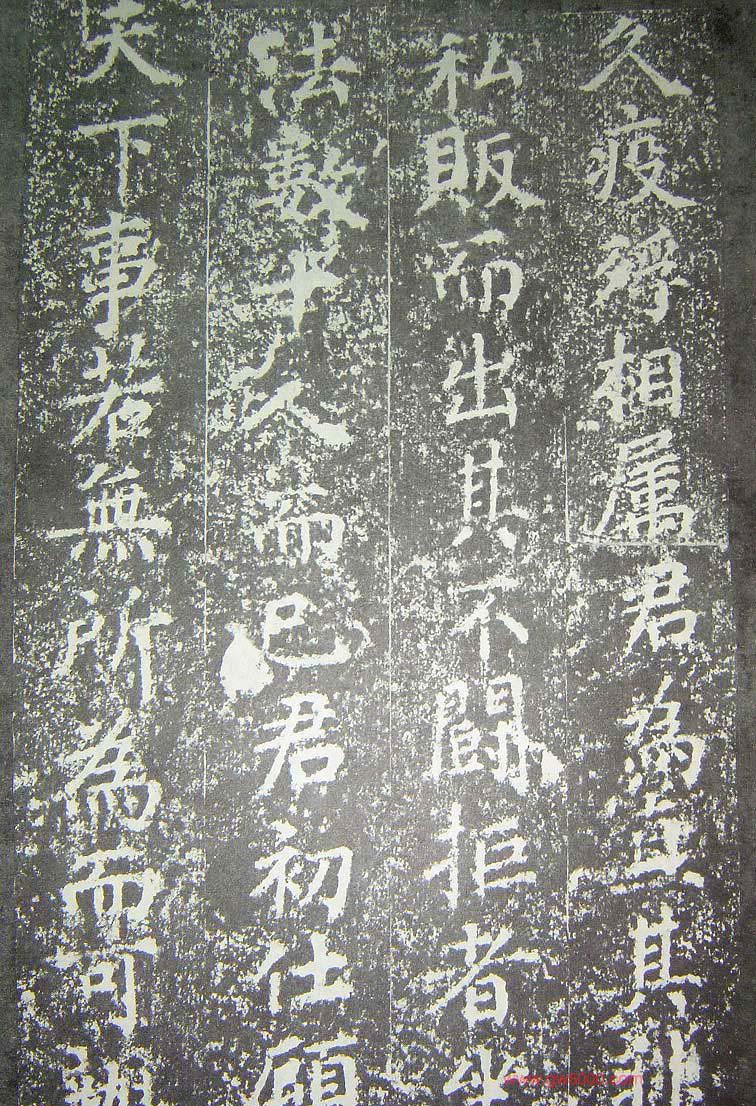 久疫殍相属君為直其非
私販而出其不鬪拒者坐
法數十人而已君初仕願
天下事若無所為而可
www.gw8000.com